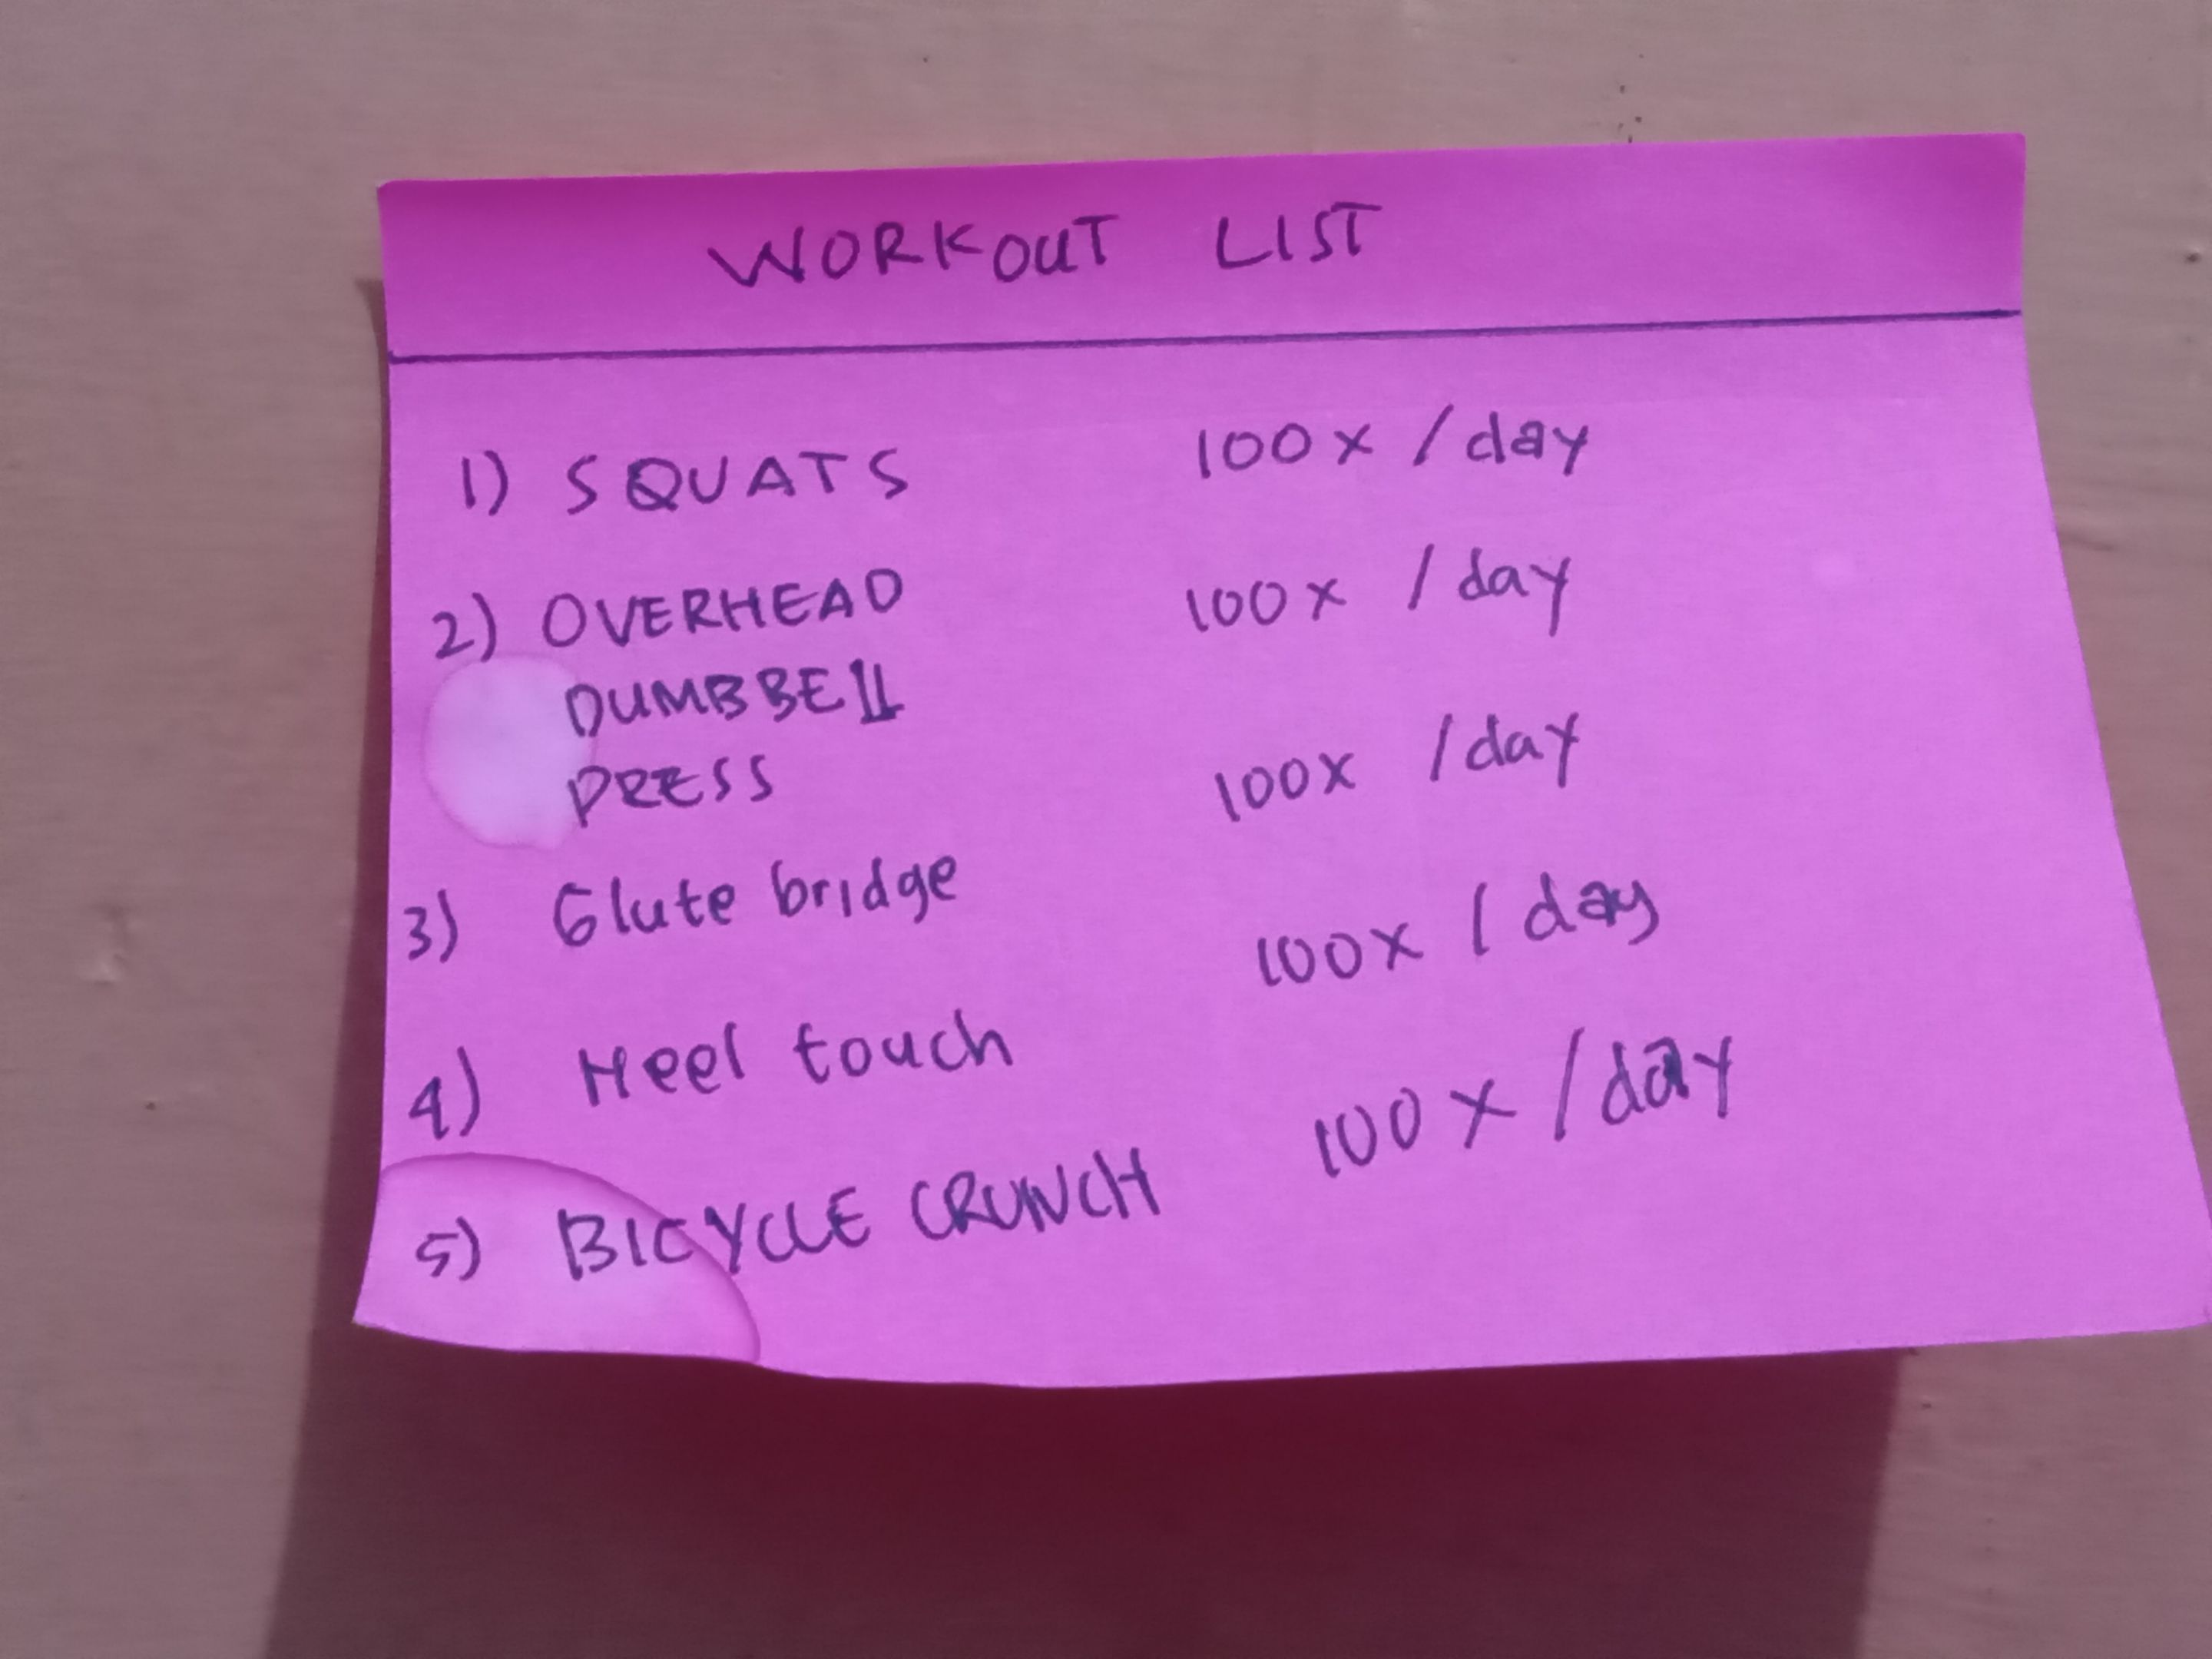 WORKOUT LIST
1) SQUATS 100x /day
2) OVERHEAD 100x /day
DUMBBELL
PRESS 100x /day
3) Glute bridge 100x /day
4) Heel touch 100x /day
5) BICYCLE CRUNCH